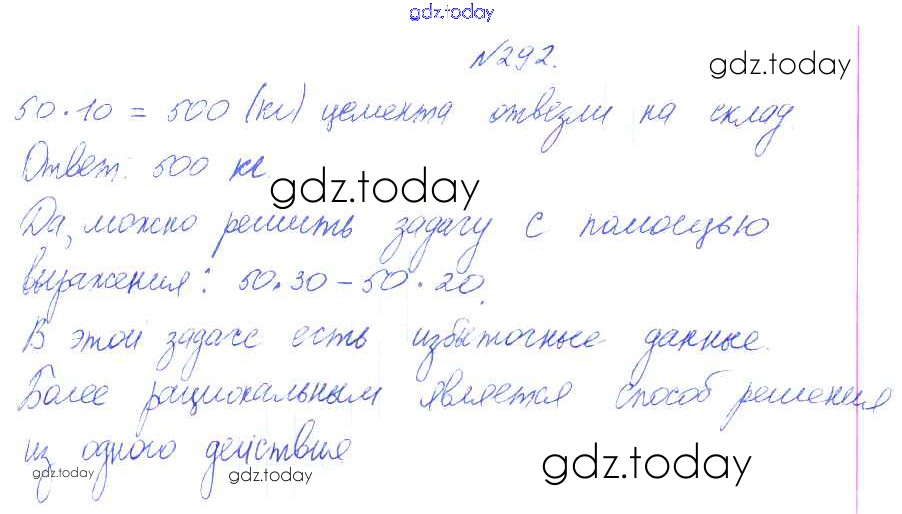 gdz.today
№292.
gdz.today
50·10 = 500 (кг) цемента отвезли на склад.
Ответ: 500 кг.
gdz.today
Да, можно решить задачу с помощью
выражения: 50·30-50·20.
В этой задаче есть избыточные данные.
Более рациональным является способ решения
из одного действия.
gdz.today
gdz.today
gdz.today